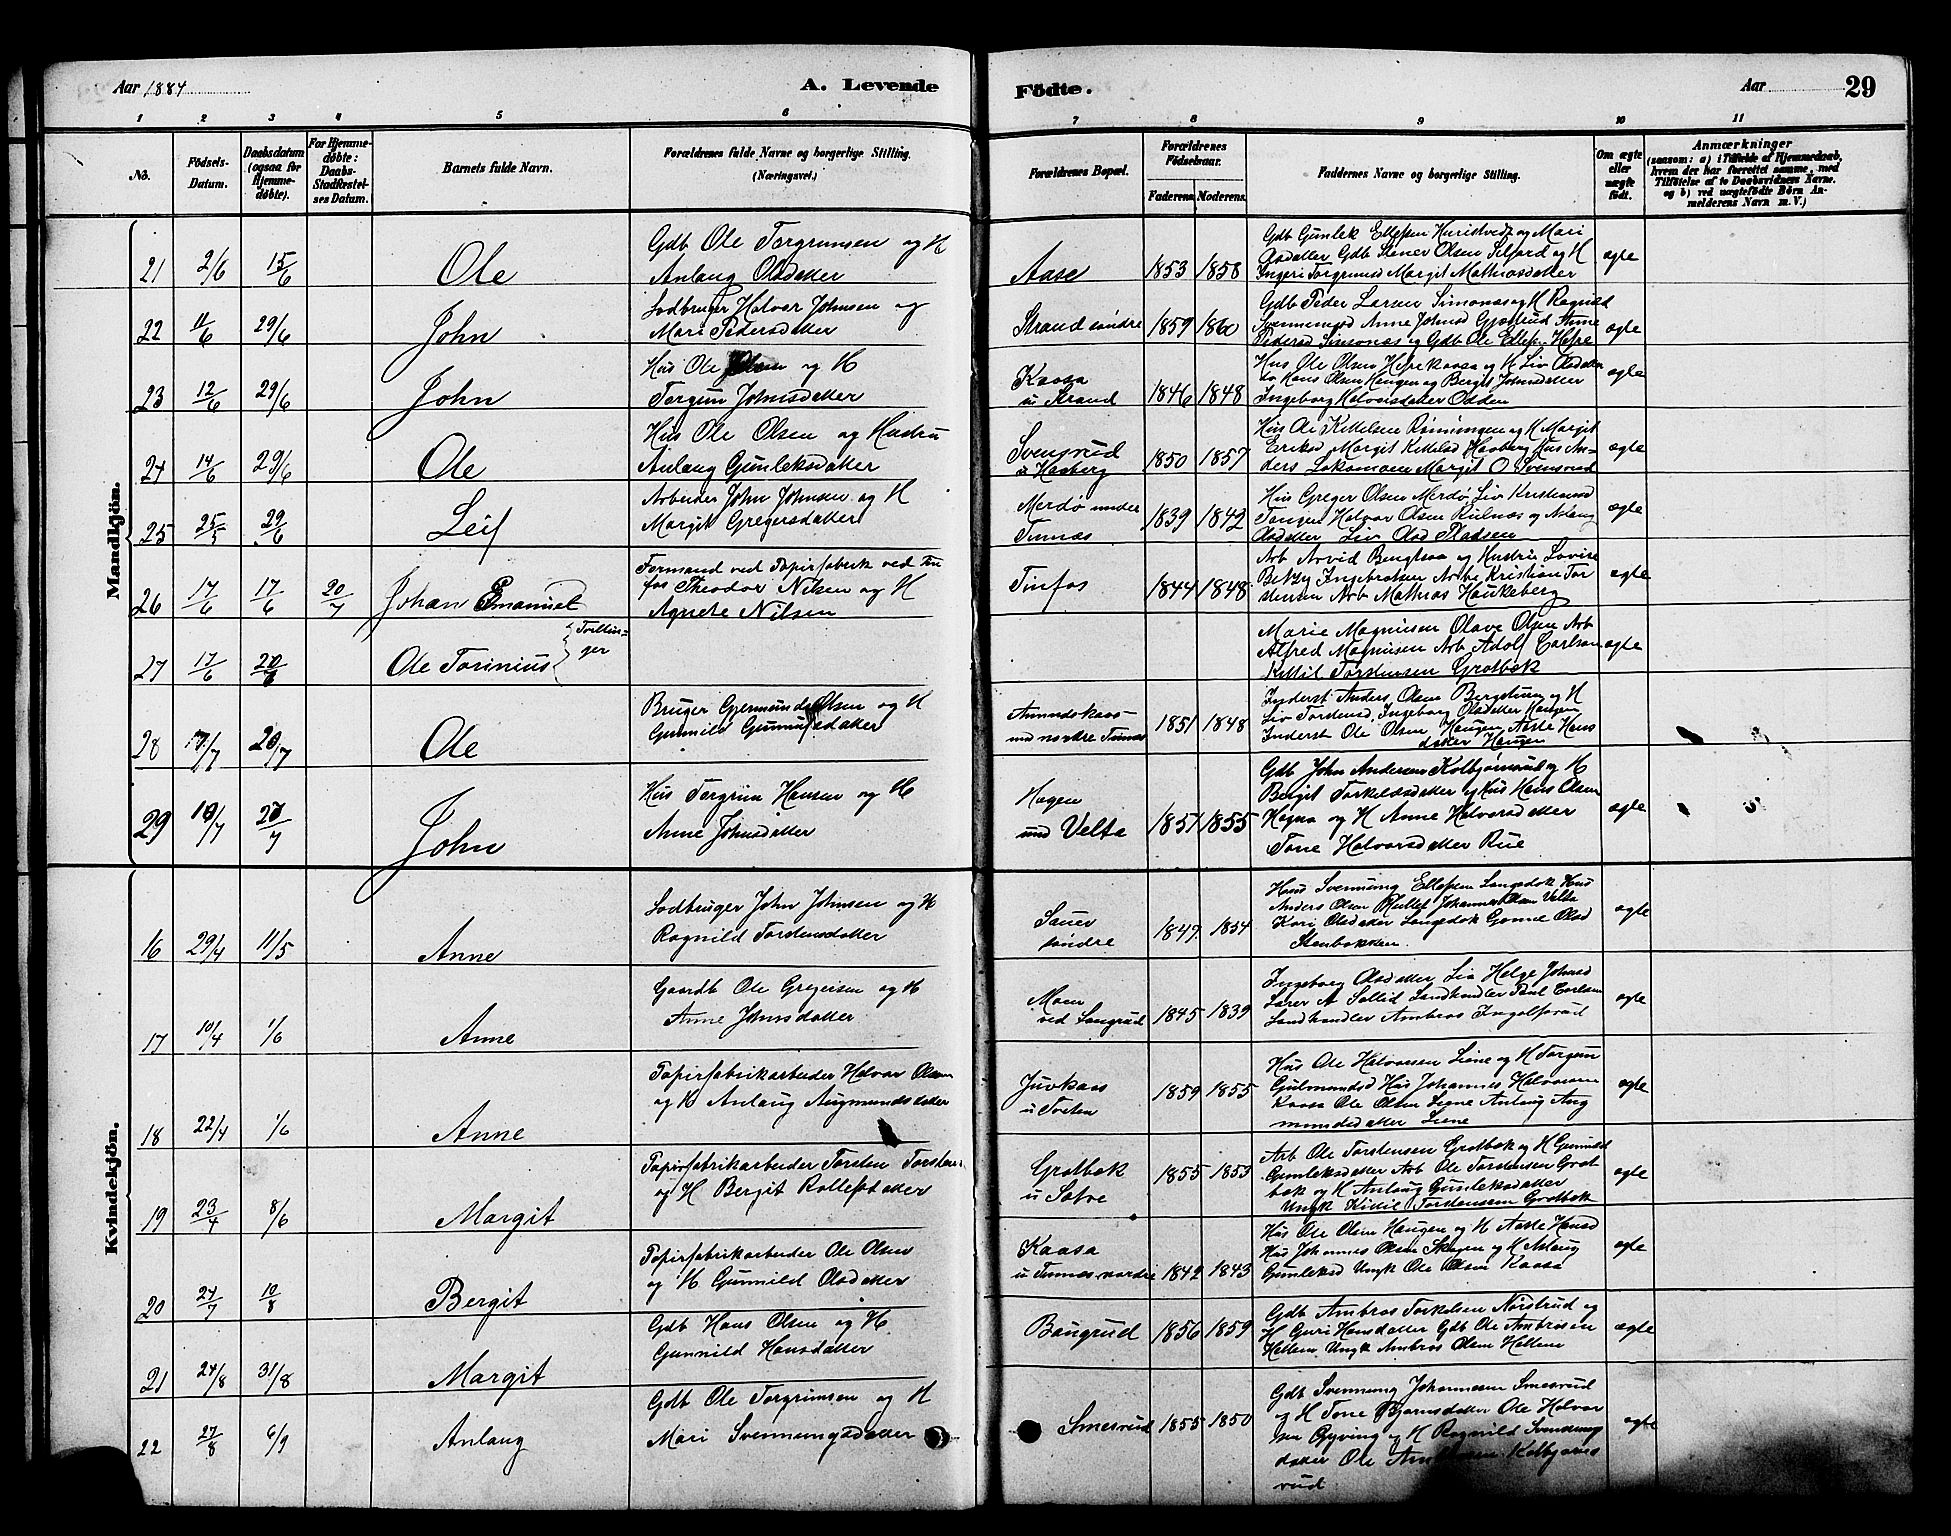 Aar 1884
A. Levende
Födte.
Aar
29
1 2 3 4 5 6 7 8 9 10 11
No.
Födsels-Datum.
Daabsdatum (ogsaa for Hjemme-døbte).
For Hjemme-døbte: Daabs-Stadfæstel-ses Datum.
Barnets fulde Navn.
Forældrenes fulde Navne og borgerlige Stilling.
(Næringsvei.)
Forældrenes Bopæl.
Forældrenes Födselsaar.
Faderens. Moderens.
Faddernes Navne og borgerlige Stilling.
Om ægte eller uægte födt.
Anmærkninger
(saasom: a) i Tilfælde af Hjemmedaab, hvem der har forrettet samme, med Tilföielse af to Daabsvidners Navne. og b) ved uægtefödte Börn An-melderens Navn m. V.)
Mandkjön.
21 2/6 15/6 Ole
Gdb Ole Torgrimsen og H
Anlaug Olsdatter
Aase 1853 1858
Gdb Gunlek Ellefsen og Mari
Olsdatter Gdb Stener Olsen og H
Ingeri Torgrimsd Margit Mathiasdatter
ægte
22 11/6 29/6 John
Lodbruger Halvor Johnsen og
Mari Pedersdatter
Strand söndre 1859 1860
Gdb Peder Larsen Simonæs og H Ragnild
Svenningsd Anne Johnsd Anne
Pedersd Simonæs og Gdb Ole Ellefsen
ægte
23 12/6 29/6 John
Hus Ole Olsen og H
Torgun Johnsdatter
Kaasa
u Strand 1846 1848
Hus Ole Olsen og H Liv Olsdatter
Hans Olsen Haugen og Bergit Johnsdatter
Ingeborg Halvorsdatter Odden
ægte
24 14/6 29/6 Ole
Hus Ole Olsen og Hustru
Anlaug Gunleksdatter
Svensrud
u Haaberg 1850 1857
Hus Ole Kittelsen Rønningen og H Margit
Eriksd Margit Kittelsd Haaberg Hus An-
ders Margit O Svensrud
ægte
25 25/5 29/6 Leif
Arbeider John Johnsen og H
Margit Gregersdatter
Merdø under
Tinnæs 1839 1842
Hus Greger Olsen Merdø Liv Kristensd
Tangen Halvor Olsen og Aslaug
Olsdatter Liv Olsd Pladsen
ægte
26 17/6 17/6 20/7 Johan Emanuel
Formand ved Papirfabrik ved Tin
fos Theodor Nilsen og H
Agnete Nilsen
Tinfos 1844 1848
Arb Arvid Bengtson og Hustru Lovise
Betzy Ingebretsen Arb Kristian Tor
stensen Arb Mathias Haukeberg
ægte
27 17/6 20/6 Ole Torinius
Tvillin-
ger
Marie Magnusen Olave Olsen Arb
Alfred Magnusen Arb Adolf Carlsen
Kittil Torstensen Grotbæk
ægte
28 17/7 20/7 Ole
Bruger Gjermund Olsen og H
Gunild Gunulfsdatter
Amundskaas
und nordre Tinnæs 1851 1848
Inderst Anders Olsen Bergstuen og H
Liv Torstensd Ingeborg Olsdatter Haugen
Inderst Ole Olsen Haugen Aste Hans
datter Haugen
29 10/7 20/7 John
Hus Torgrim Hansen og H
Anne Johnsdatter
Hagen
und Velta 1851 1855
Gdb John Andersen Kolbjørnsrud og H
Bergit Torkelsdatter og Hus Hans Olsen
Hagen og H Anne Halvorsdatter
Tone Halvorsdatter Rue
ægte
Kvindekjön.
16 29/4 11/5 Anne
Lodbruger John Johnsen og H
Ragnild Torstensdatter
Sauer
söndre 1847 1854
Huus Svennung Ellefsen Langedok Hus
Anders Olsen Johannes Olsen Velta
Kari Olsdatter Langedok Gunne Olsd
Stenbakken.
ægte
17 10/4 1/6 Anne
Gaardb Ole Gregersen og H
Anne Johnsdatter
Moen
ved Langrud 1845 1839
Ingeborg Olsdatter Liv Helge Johnsd
Lærer A Sollid Landhandler Paul Carlsen
Landhandler Ambros Ingolfsrud
ægte
18 22/4 1/6 Anne
Papirfabrikarbeider Halvor Olsen
og H Anlaug Augmundsdatter
Juvkaas
u Tveten 1859 1855
Hus Ole Halvorsen Liene og H Torgun
Gulmundsd Hus Johannes Halvorsen
Kaasa Ole Olsen Liene Anlaug Aug
mundsdatter Liene
ægte
19 23/4 8/6 Margit
Papirfabrikarbeider Torsten Torstens
og H Bergit Rollefsdatter
Grotbæk
u Sætre 1855 1853
Arb Ole Torstensen Grotbæk og H Gunnild
Gunleksdatter Arb Ole Torstensen Grot
bæk og H Anlaug Gunleksdatter
Ungk Kittil Torstensen Grotbæk
ægte
20 27/7 10/8 Bergit
Papirfabrikarbeider Ole Olsen
og H Gunnild Olsdatter
Kaasa
u Tinnæs nordre 1842 1843
Hus Ole Olsen Haugen og H Aste Hansd
Hus Johannes Olsen Skogen og H Aslaug
Gunleksd Ungk Ole Olsen Kaasa
ægte
21 24/8 31/8 Margit
Gdb Hans Olsen og H
Gunnild Hansdatter
Baugrud 1856 1859
Gdb Ambros Torkelsen Nørstrud og
H Guri Hansdatter Gdb Ole Ambrosen
Hellem Ungk Ambros Olsen Hellem
ægte
22 27/8 6/9 Anlaug
Gdb Ole Torgrimsen og H
Mari Svennungsdatter
Smesrud 1855 1850
Gdb Svennung Johannesen Smesrud
og H Tone Bjørnsdatter Ole Halvor
sen og H Ragnild Svennung
datter Ole Kolbjørns
rud
ægte